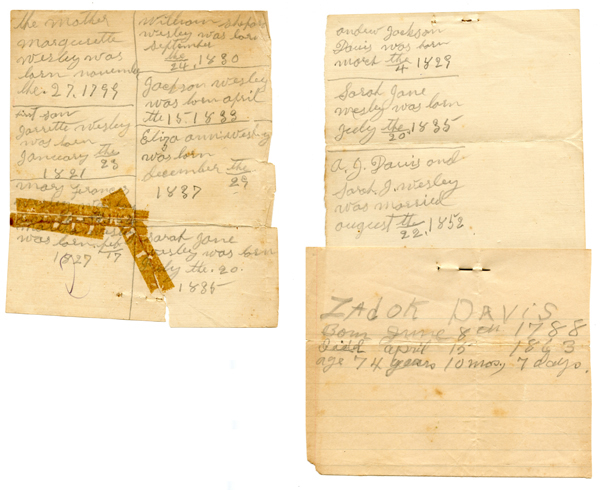 the mother
marguerette
wesley was
born november
the. 27, 1799
first son
Jarrette wesley
was born
January the
23
1821
mary
was born. feb
17
1827
William
wesley was born
september
the
24, 1830
Jackson wesley
was born april
the 15. 1833
Eliza ann wesley
was born
december the
29
1837
Sarah Jane
wesley was born
July the. 20.
1835
andrew Jackson
Davis was born
march the
4 1829
Sarah Jane
wesley was born
July the 1835
20.
A. J. Davis and
Sarah J. Wesley
was married
august the 1852
22,
ZADOK DAVIS
Born June 8th 1788
Died april 15 1863
age 74 years 10 mos, 7 days.